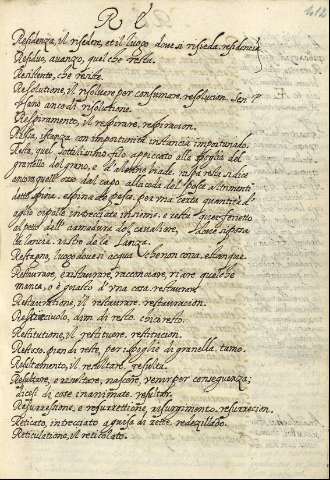 R E
Residenza, il risedere, et il luogo doue si risieda. residencia
Residuo, auanzo, quel che resta.
Resistente, che resiste.
Resolutione, il risoluere per consumare, resolucion. Sen
P
ancò di risolutione.
Respiramento, il respirare, respiracion.
Ressa, istanza con importunità instancia importunado.
Resta, quel sottilissimo filo appiccato alla spoglia del
granello del grano, e d'
anco quell' osso dal capo alla coda del pesce altrimenti
detto spina. espina do pexe. per una certa quantità d'
aglio ò cipolle intrecciate insieme. e resta
al petto dell' armadura do caualiere,
la lancia. ristre de la lanza.
Restagno, luogo doue si acqua che non cora, estanque.
Restaurare, e ristaurare, racconciare, rifare quel che
manca, o è guasto d'una cosa. restaurar
Restauratione, il restaurare. restauracion.
Resticciuolo, dim. di resto. chico resto.
Restitutione, il restituire. restitucion.
Restoso, pien di reste, per ispoglie di granella, tamo.
Resultamento, il resultare. resulta.
Resultare, e risultare, nascere, venir per conseguenza;
dicesi di cose inanimate. resultar.
Resurressione, e resurrettione, risurgimento. resurrecion.
Reticato, intrecciato a guisa di rette. redezillado.
Reticulatione, il reticolato.